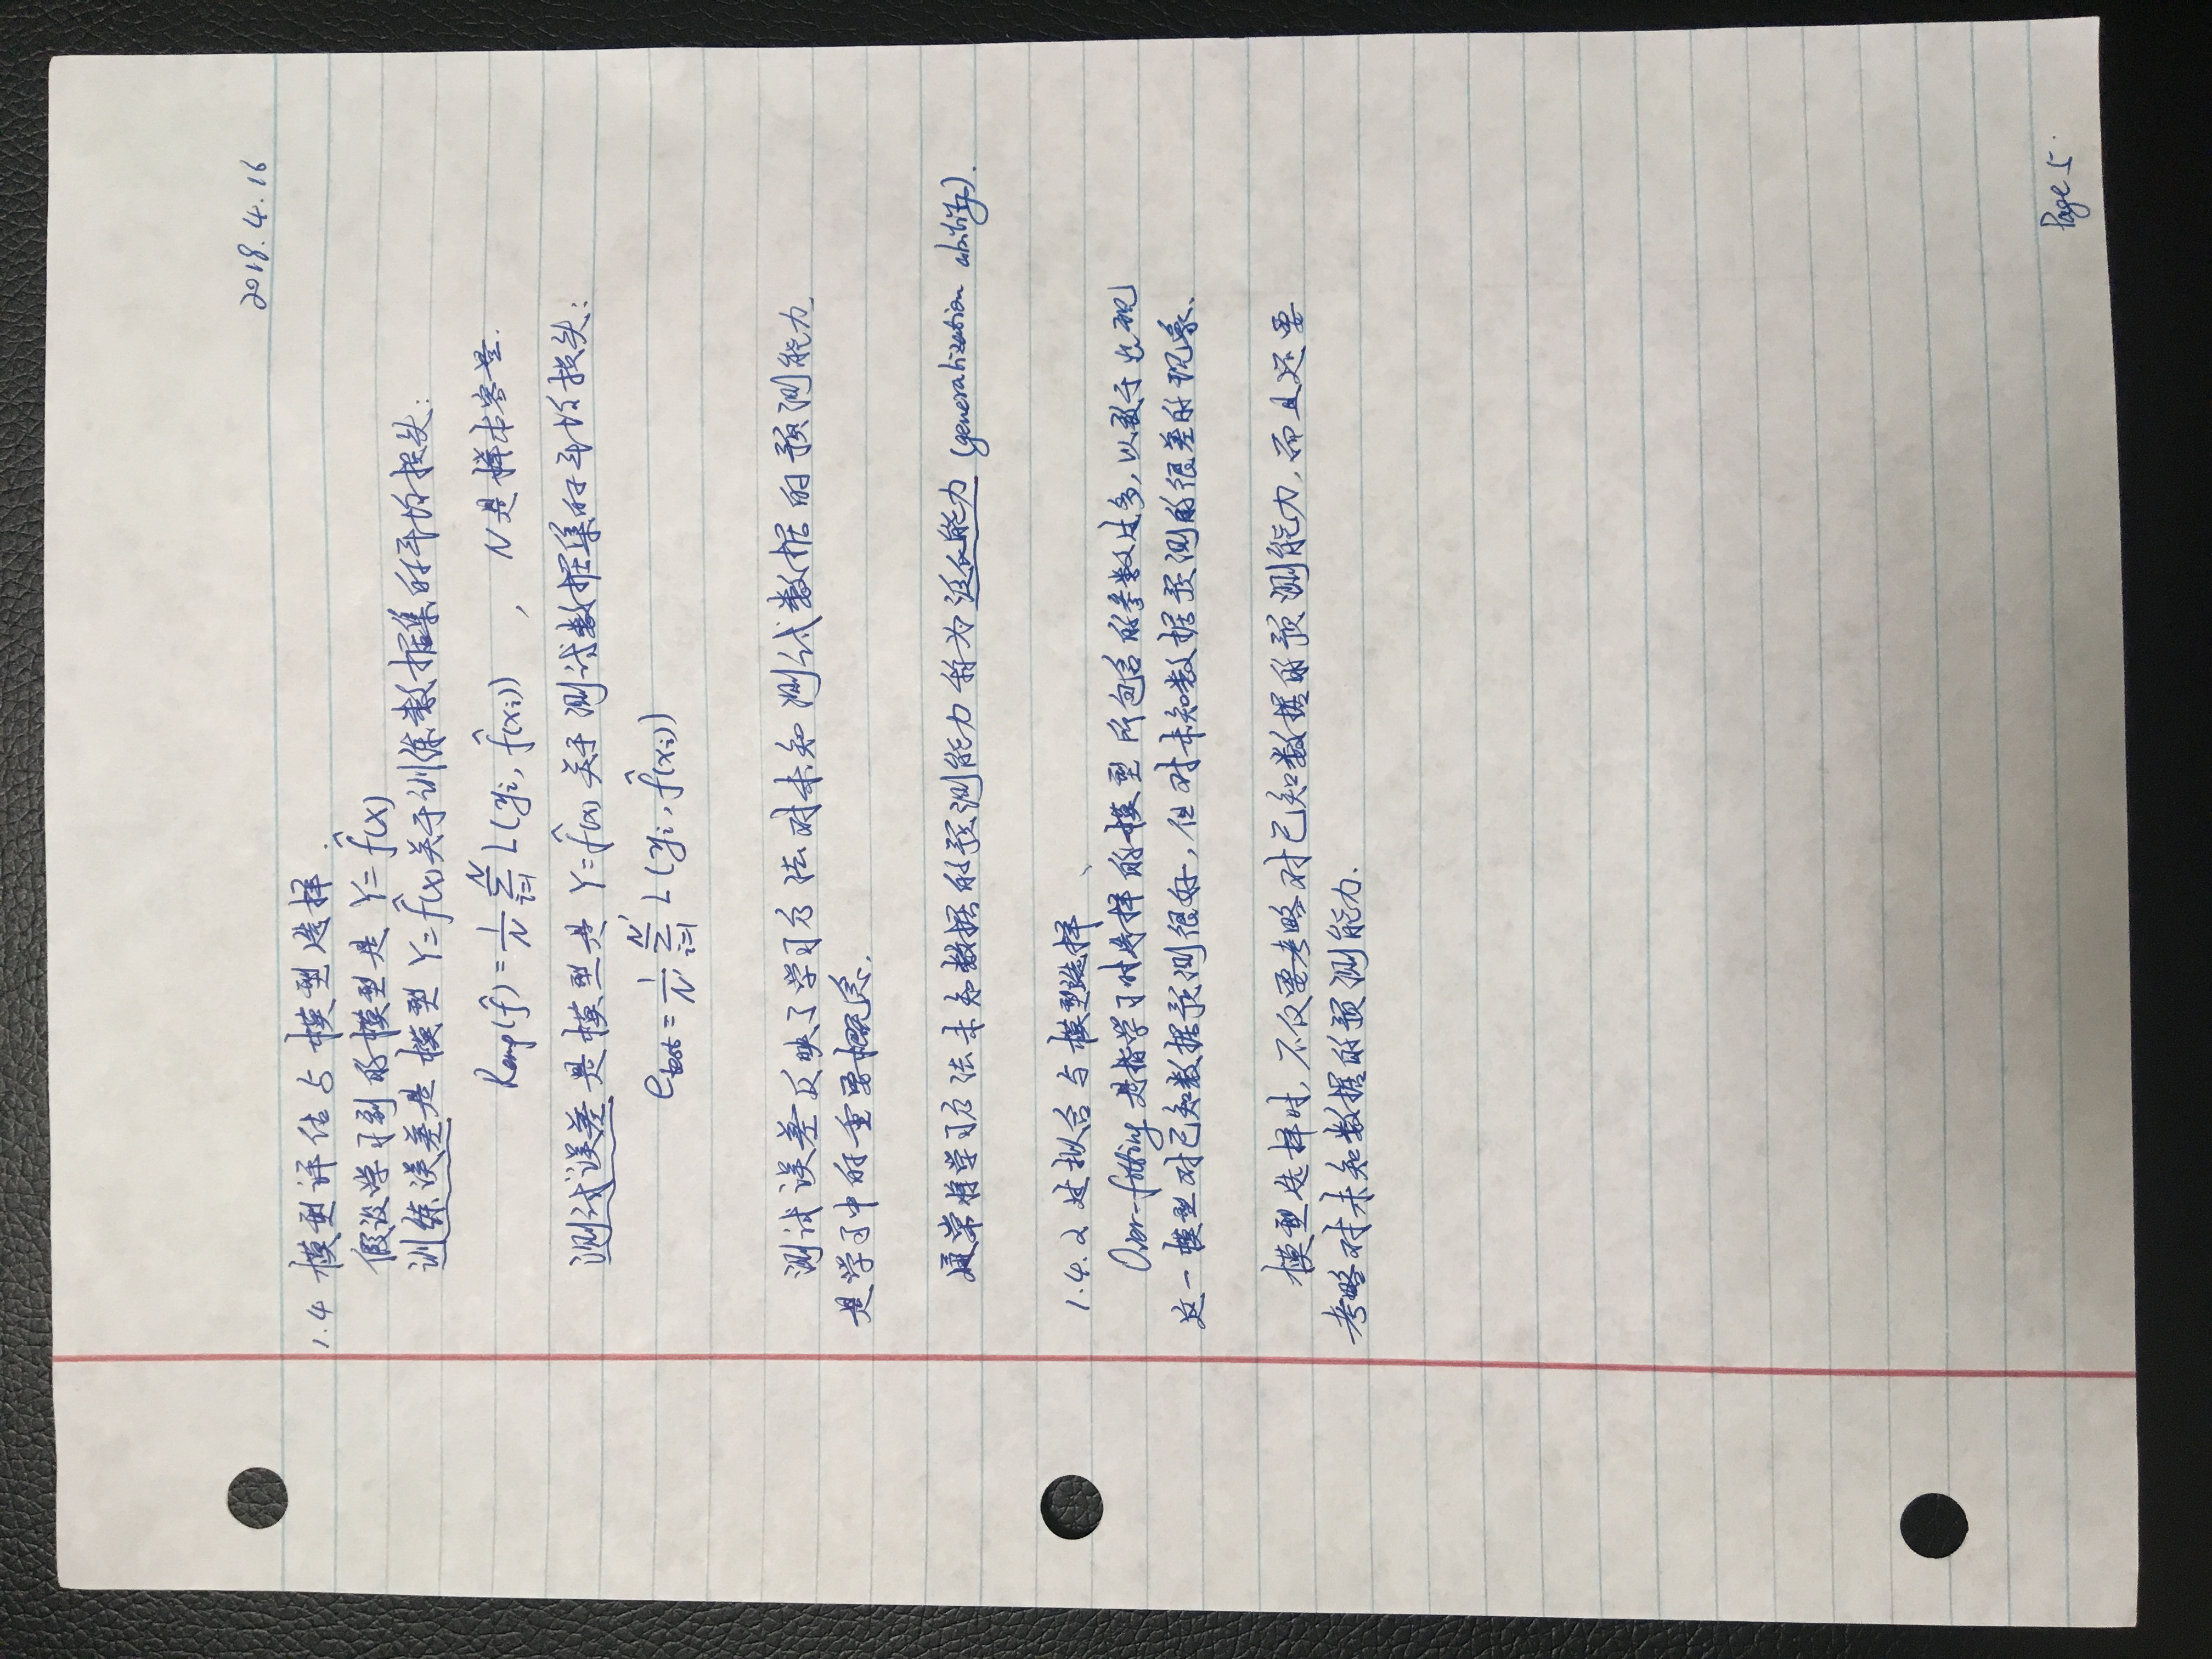 2018.4.16
1.4 模型评估与模型选择.
假设学习到的模型是 Y=f̂(X)
训练误差是模型 Y=f̂(x)关于训练数据集的平均损失:
Remp(f̂)=1/N Σ_{i=1}^{N} L(yi, f̂(xi)) , N是样本容量.
测试误差是模型是 Y=f̂(x) 关于测试数据集的平均损失:
etest=1/N' Σ_{i=1}^{N'} L(yi, f̂(xi))
测试误差反映了学习方法对未知测试数据的预测能力
是学习中的重要概念.
通常将学习方法未知数据的预测能力称为泛化能力 (generalization ability).
1.4.2 过拟合与模型选择、
Over-fitting 是指学习时选择的模型所包含的参数过多,以致于出现
这一模型对已知数据预测很好,但对未知数据预测的很差的现象、
模型选择时,不仅要考略对已知数据的预测能力,而且还要
考略对未知数据的预测能力.
Page 5.